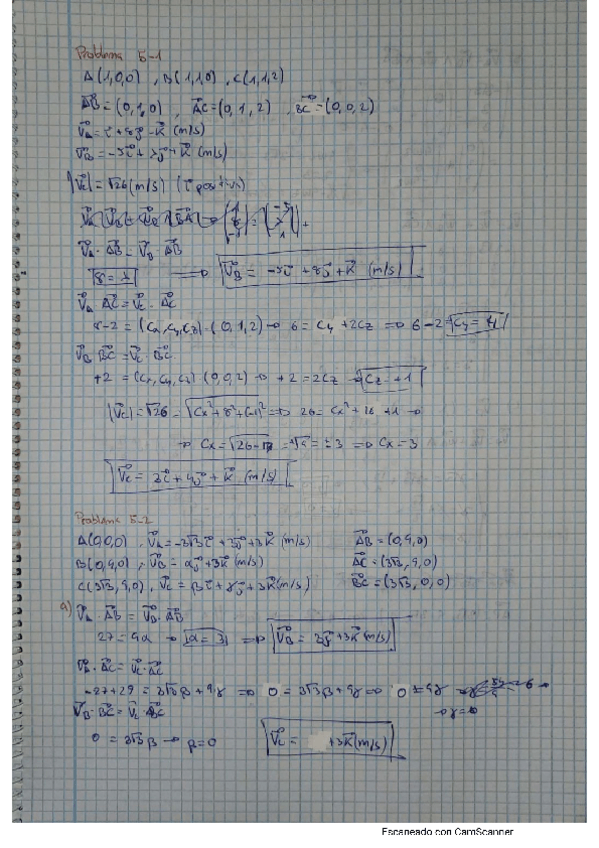 Problema 5-1
A(1,0,0) , B(1,1,0) , C(1,1,2)
AB = (0,1,0) , AC = (0,1,2) , BC = (0,0,2)
VA = i + 8j - k (m/s)
VB = -5i + λj + k (m/s)
|Vc| = √26 (m/s) (i positivo)
VA · AB = VB · AB
8 = λ => VB = -5i + 8j + k (m/s)
VA · AC = Vc · AC
8-2 = (Cx, Cy, Cz) · (0,1,2) -> 6 = Cy + 2Cz => 6-2 = Cy = 4
VB · BC = Vc · BC
+2 = (Cx, Cy, Cz) (0,0,2) -> +2 = 2Cz -> Cz = +1
=> Cx = 3
Vc = 3i + 4j + k (m/s)
Problema 5-2
A(0,0,0) , VA = -3√3 i + 3j + 3k (m/s) AB = (0,9,0)
B(0,9,0) , VB = αj + 3k (m/s) AC = (3√3, 9, 0)
C(3√3, 9, 0) , Vc = βi + γj + 3k (m/s) BC = (3√3, 0, 0)
a) VA · AB = VB · AB
27 = 9α -> α = 3 => VB = 3j + 3k (m/s)
VA · AC = Vc · AC
-27+27 = 3√3β + 9γ => 0 = 3√3β + 9γ => 0 = 9γ
-> γ = 0
VB · BC = Vc · BC
0 = 3√3β -> β = 0 Vc = +3k (m/s)
Escaneado con CamScanner